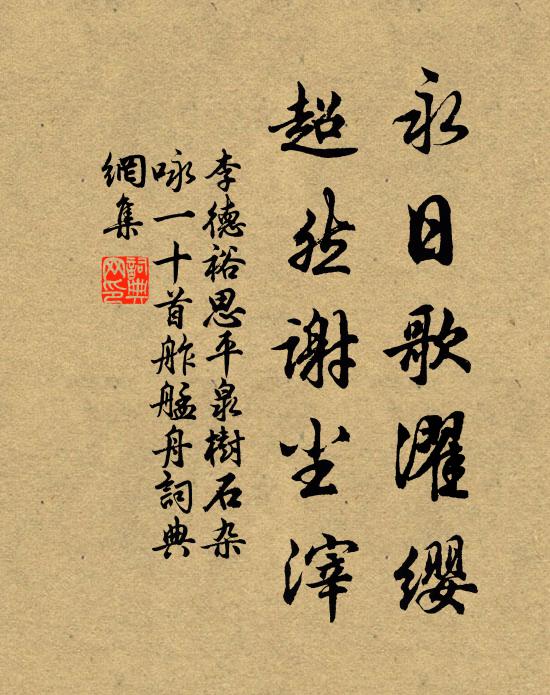 永日歌濯纓
超然謝尘滓
李德裕思平泉樹石杂
咏一十首舴艋舟詞典
網集
詞典
网印